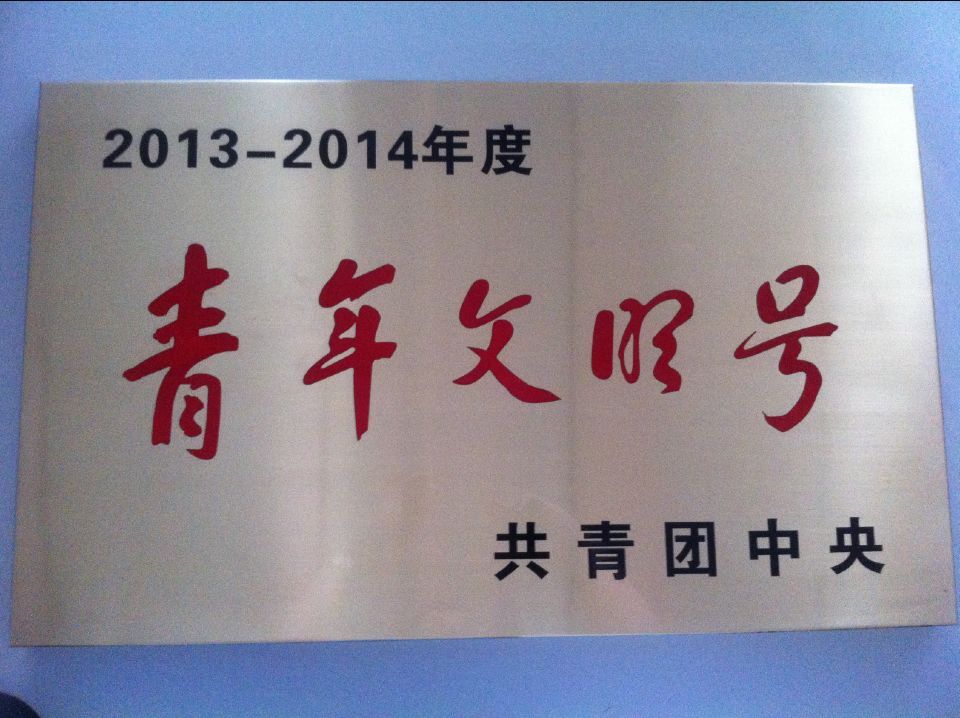 2013-2014年度
青年文明号
共青团中央